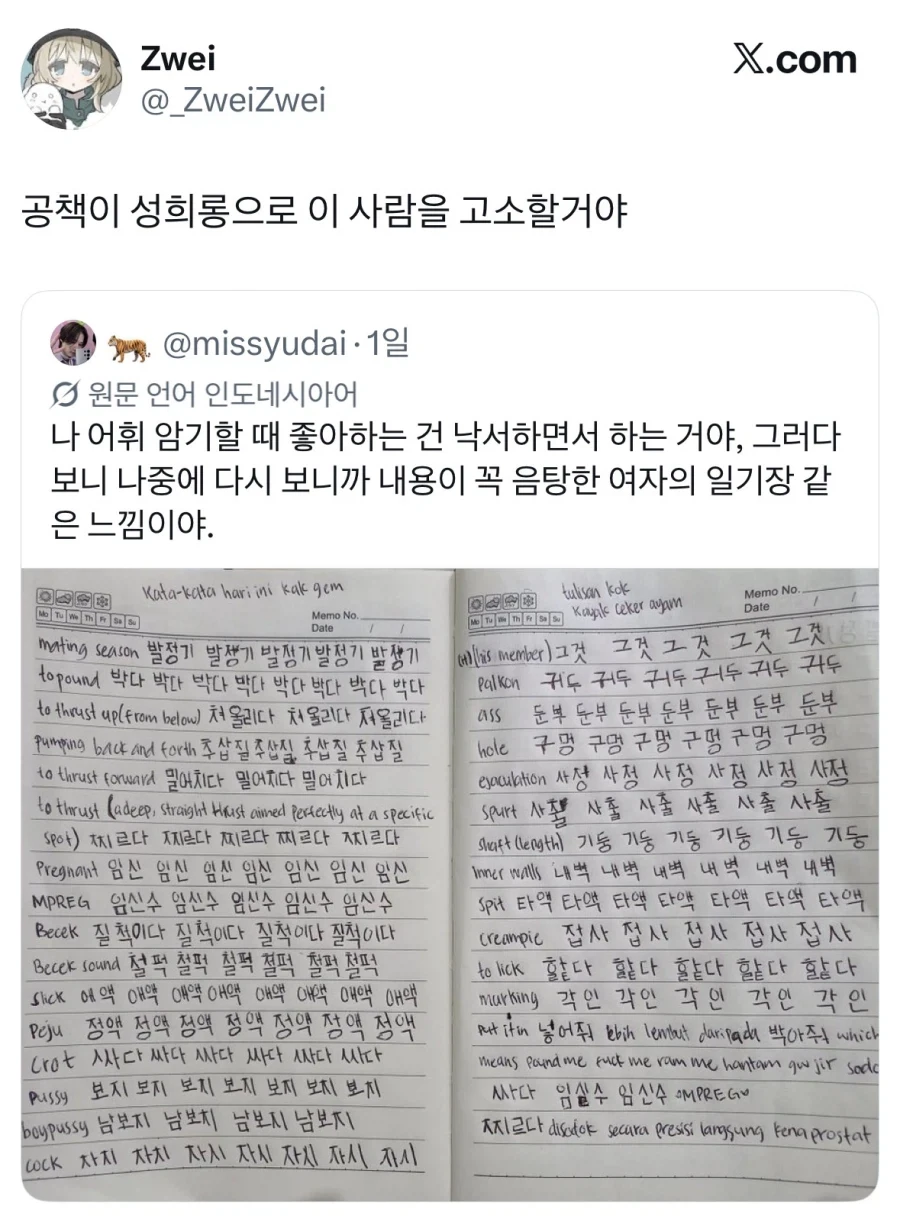 Zwei
@_ZweiZwei
X.com
공책이 성희롱으로 이 사람을 고소할거야
@missyudai · 1일
원문 언어 인도네시아어
나 어휘 암기할 때 좋아하는 건 낙서하면서 하는 거야, 그러다
보니 나중에 다시 보니까 내용이 꼭 음탕한 여자의 일기장 같
은 느낌이야.
Kata-kata hari ini kak gem
Mo Tu We Th Fr Sa Su
Memo No.
Date / /
mating season 발정기 발정기 발정기 발정기 발정기
to pound 박다 박다 박다 박다 박다 박다 박다 박다
to thrust up (from below) 쳐올리다 쳐올리다 쳐올리다
pumping back and forth 추삽질 추삽질 추삽질 추삽질
to thrust forward 밀어치다 밀어치다 밀어치다
to thrust (a deep, straight thrust aimed perfectly at a specific
spot) 찌르다 찌르다 찌르다 찌르다 찌르다
Pregnant 임신 임신 임신 임신 임신 임신 임신
MPREG 임신수 임신수 임신수 임신수 임신수
Becek 질척이다 질척이다 질척이다 질척이다
Becek sound 철퍽 철퍽 철퍽 철퍽 철퍽 철퍽
slick 애액 애액 애액 애액 애액 애액 애액 애액
Peju 정액 정액 정액 정액 정액 정액 정액
Crot 싸다 싸다 싸다 싸다 싸다 싸다
pussy 보지 보지 보지 보지 보지 보지 보지
boypussy 남보지 남보지 남보지 남보지
cock 자지 자지 자지 자지 자지 자지 자지
tulisan kok
kayak ceker ayam
Mo Tu We Th Fr Sa Su
Memo No.
Date / /
(his member) 그것 그것 그것 그것 그것
palkon 귀두 귀두 귀두 귀두 귀두 귀두
ass 둔부 둔부 둔부 둔부 둔부 둔부 둔부
hole 구멍 구멍 구멍 구멍 구멍 구멍
ejaculation 사정 사정 사정 사정 사정 사정
spurt 사출 사출 사출 사출 사출 사출
shaft (length) 기둥 기둥 기둥 기둥 기둥 기둥
Inner walls 내벽 내벽 내벽 내벽 내벽 내벽
spit 타액 타액 타액 타액 타액 타액 타액
creampie 접사 접사 접사 접사 접사
to lick 핥다 핥다 핥다 핥다 핥다
marking 각인 각인 각인 각인 각인
put it in 넣어줘 lebih lembut daripada 박아줘 which
means pound me fuck me ram me hantam gw jir
싸다 임신수 임신수 MPREG
찌르다 disodok secara presisi langsung kena prostat